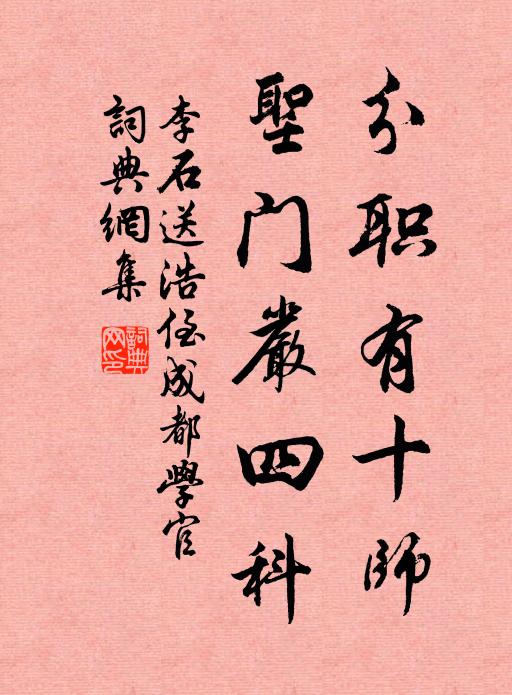 分职有十师
聖门嚴四科
李石送浩侄成都學官
詞典網集
詞典网印